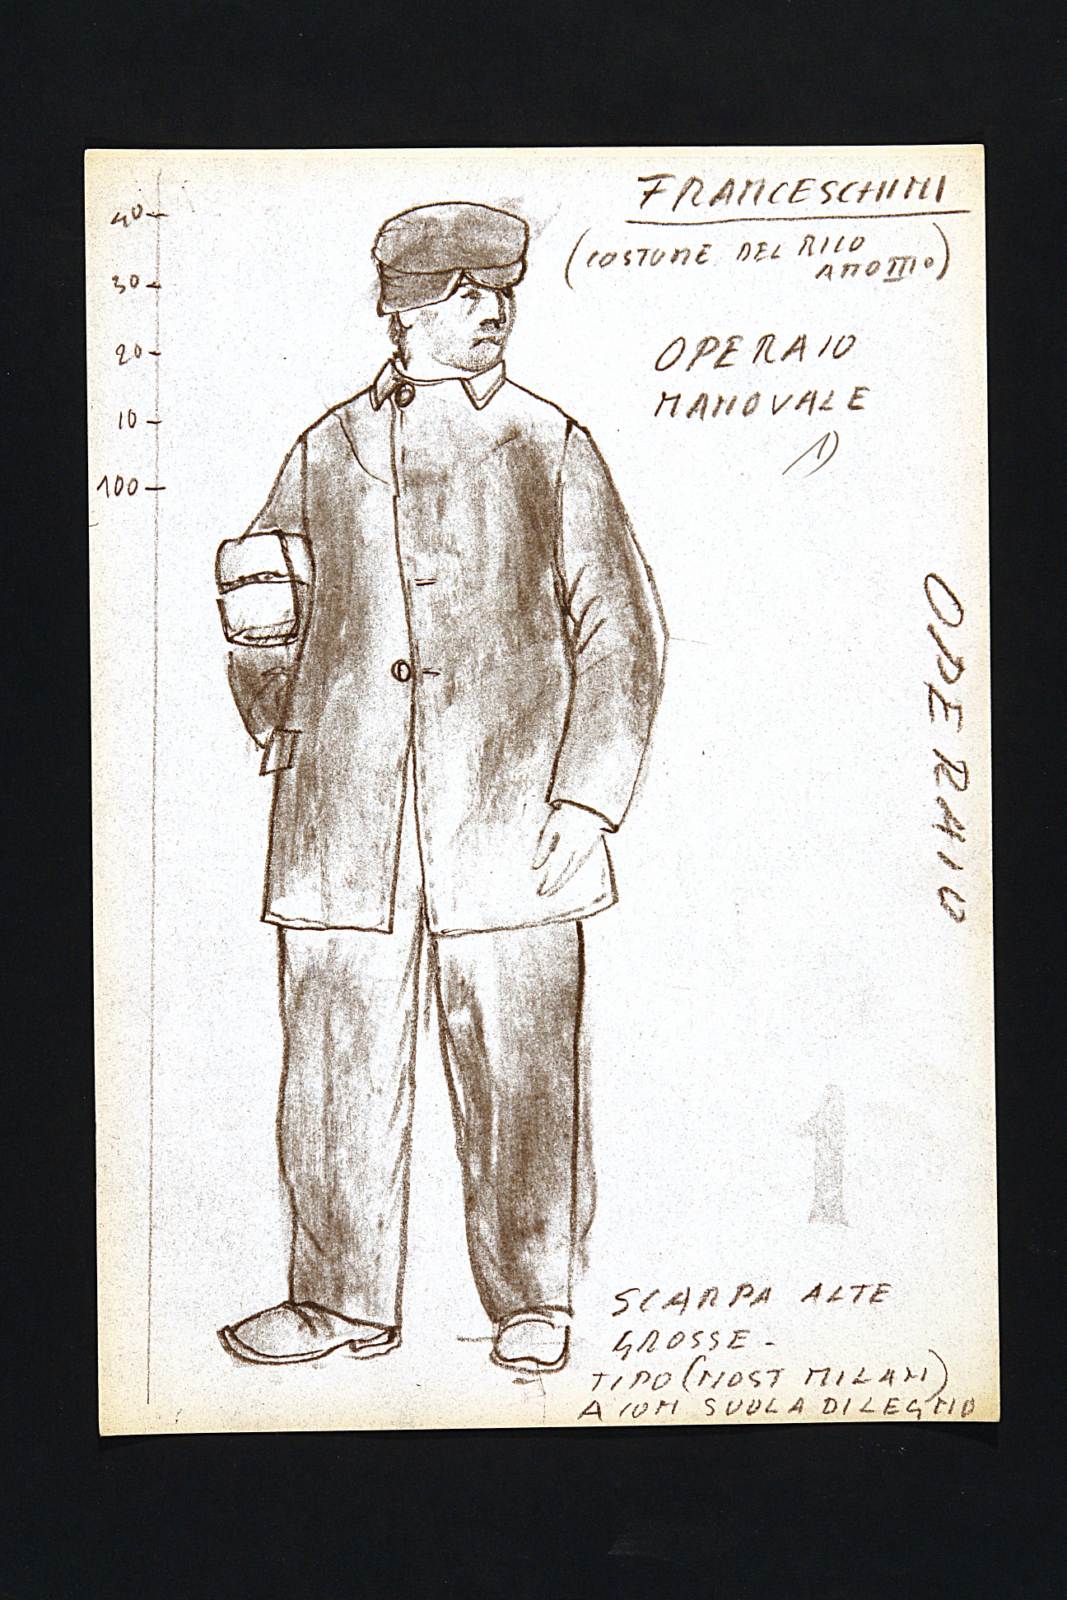 FRANCESCHINI
(COSTUME DEL RICO
OPERAIO
MANOVALE
1)
40
30
20
10
100
OPERAIO
1
SCARPA ALTE
GROSSE -
TIPO (MOST MILAN)
A CON SUOLA DI LEGNO